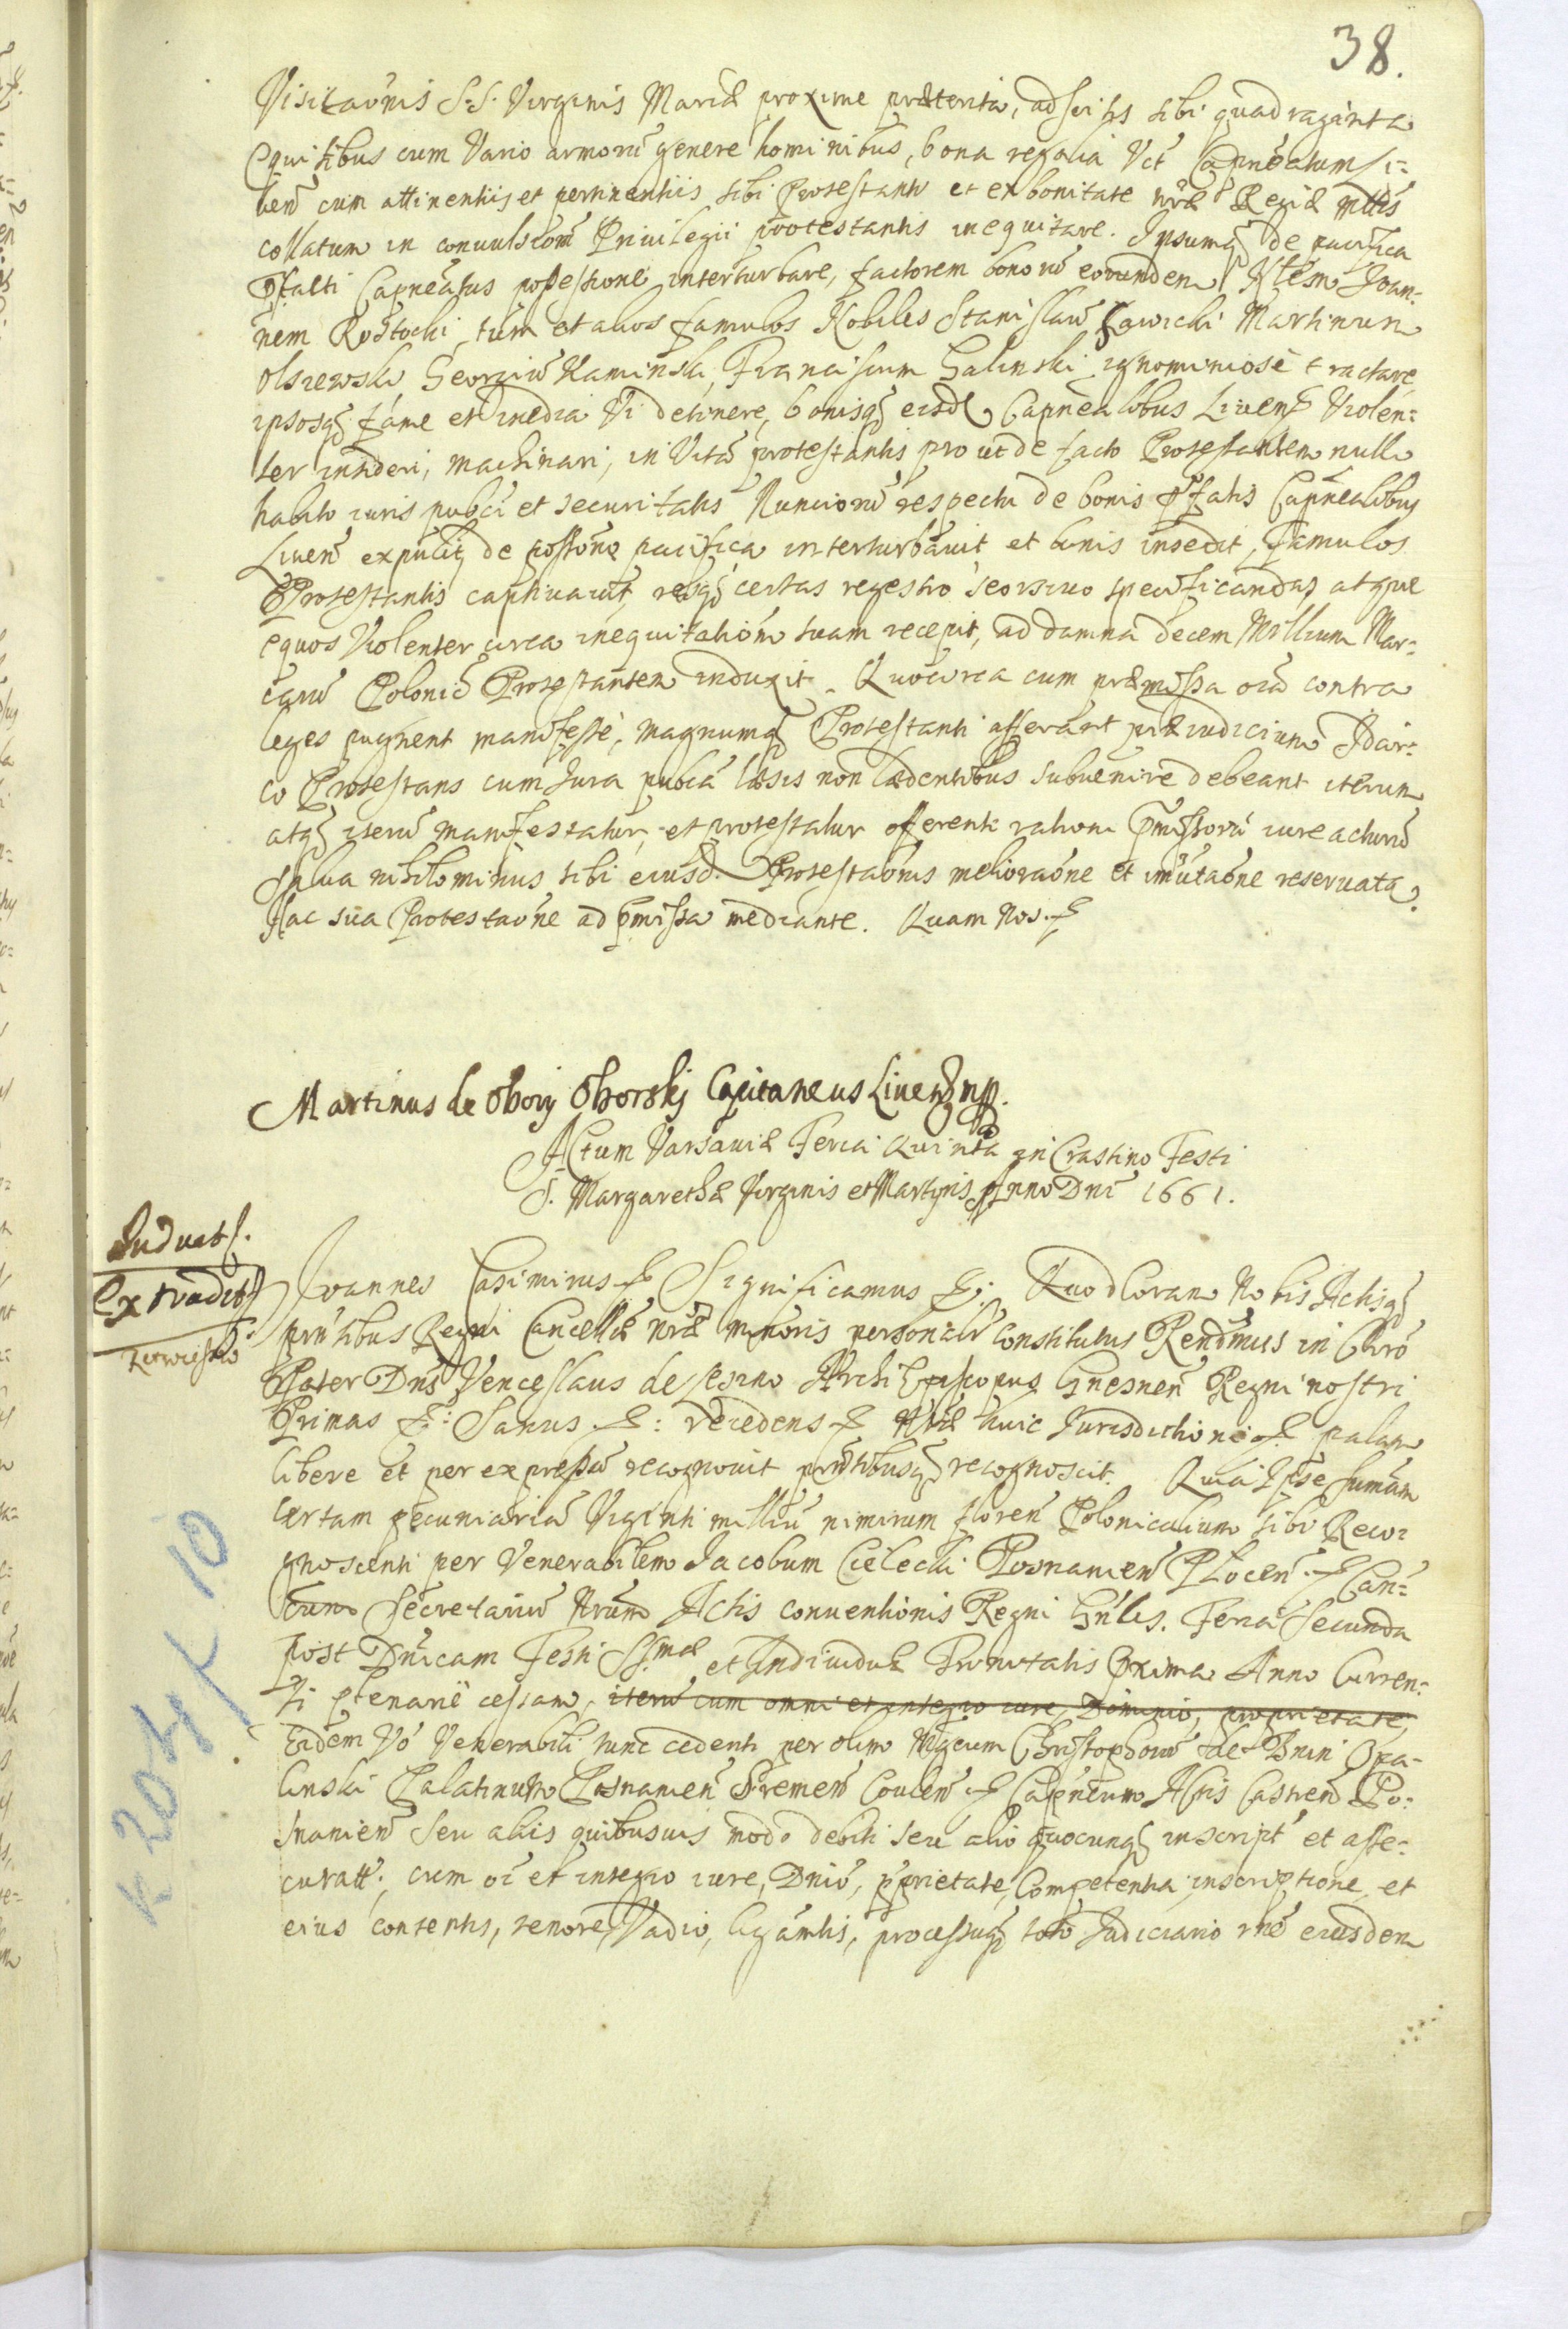 38.
Visitaōnis S.S. Virginis Mariæ proxime præterita, adscitis sibi quadraginta
equitibus cum Vario armorū genere hominibus, bona regalia Vct Capneatum Li=
uen̄ cum attinentiis et pertinentiis sibi Protestanti et ex bonitate nr̄æ Regiæ mttis
collatum in conuulsionē Priuilegii protestantis inequitare. Ipsumq́ de pacifica
p̄fatti Capneatus possessione interturbare, factorem bonorū eorundem Nblēm Joan=
nem Rostocki, tum et alios famulos Nobiles Stanislaū Sawicki Martinum
Olszewski Georgiū Kaminski, Franciscum Galinski ignominiosè tractare
ipsosq́ fame et inedia Vi detinere, bonisq́ eisd. Capnealibus Liuen̄ Violen=
ter insideri, machinari, in Vitā protestantis prout de facto Protestantem nullo
habito iuris pubci et securitatis Nunciorū respectu de bonis p̄fatis Capnealibus
Liuen̄ expulit, de possōne pacifica interturbauit et bonis insedit, Famulos
Protestantis captiuauit, resq́ certas regestro seorsiuo specificandas, atque
equos Violenter circa inequitationē suam recepit, ad damna decem Millium Mar=
carū Polonic̄ Protestantem induxit. Quocirca cum præmissa oīa contra
leges pugnent manifestè, magnumq́ Protestanti afferant præiudicium Idcir=
co Protestans cum Jura pubca læsis non lædentibus subuenire debeant iterum
atq́ iterū manifestatur, et protestatur offerent ratione p̄missorū iure acturū
Salua nihilominus sibi eiusd. Protestaōnis melioraōne et imutaōne reseruata.
Hac sua Protestaōne ad p̄missa mediante. Quam Nos. etc
Martinus de Obory Oborskj Capitaneus Liuen̄ mp.
Actum Varsauiæ Feria Quinta in Crastino Festi
S. Margarethæ Virginis et Martyris Anno Dnī 1661.
Induct.
Extradit
Joannes Casimirus etc Significamus etc: Quod Coram Nobis Actisq́
prn̄tibus Regni Cancellæ nr̄æ minoris personalr̄ constitutus Rend̄mus in Chr̄o
Pater Dns̄ Venceslaus de Leszno Archi Episcopus Gnesnen̄ Regni nostri
Primas etc: Sanus etc: recedens etc Nræ huic Jurisdictioni etc palam
libere et per expressū recognouit prn̄tibusq́ recognoscit. Quia Ipse Sumām
certam pecuniariā Viginti milliū nimirum floren̄ Polonicalium sibi Reco=
gnoscenti per Venerabilem Jacobum Cielecki Posnanien̄ Plocen̄ etc Can=
cum Secretariū Nrūm Actis conuentionis Regni Gn̄les. Feria Secunda
post Dn̄icam Festi SS.mæ et Indiuiduæ Trinitatis Proxima Anno Curren=
ti plenariè cessam, iterū cum omni et integro iure, Dominio, proprietate,
Eidem Vō Venerabili tunc cedenti per olim Mgcum Christophorū de Bnin Opa=
linski Palatinum Posnanien̄ Sremen̄ Coulen̄ etc Capneum Actis Castren̄ Po=
snanien̄ seu aliis quibusuis modo debiti seu alio quocunq́ inscript̄ et asse=
curatt. cum oī et integro iure, Dniō, p̄prietate, Competentia inscriptione, et
eius contentis, tenore, Vadio, ligamtis, processuq́ toto Judiciario rnē eiusdem
K 204/K 10